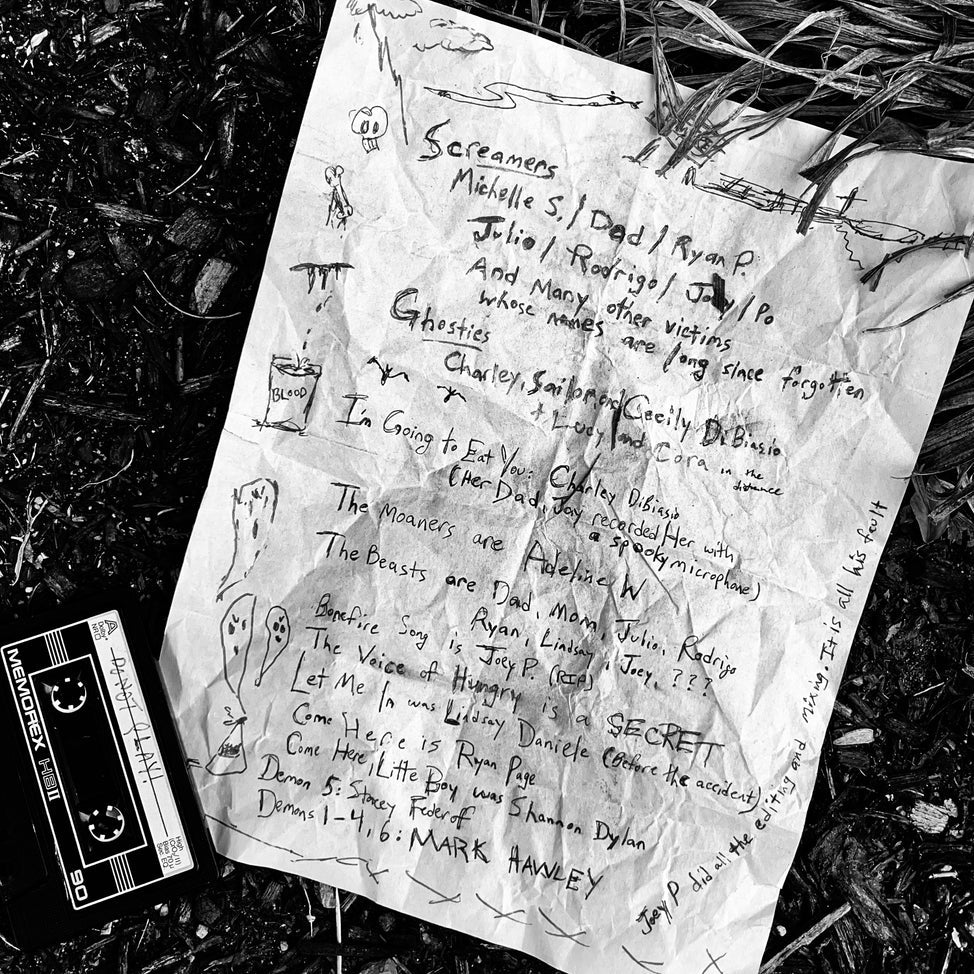 Screamers
Michelle S. / Dad / Ryan P.
Julio / Rodrigo / Joey / Po
And Many other victims
whose names are long since forgotten
Ghosties
Charley, Sailor, and Cecily DiBiasio
+ Lucy and Cora in the distance
BLOOD
I'm Going to Eat You: Charley DiBiasio
(Her Dad, Jay recorded Her with
a spooky microphone)
The Moaners are Adeline W
The Beasts are Dad, Mom, Julio, Rodrigo
Ryan, Lindsay, Joey, ???
Bonefire Song is Joey P. (RIP)
The Voice of Hungry is a SECRET
Let Me In was Lindsay Daniele (Before the accident)
Come Here is Ryan Page
Come Here, Little Boy was Shannon Dylan
Demon 5: Stacey Federoff
Demons 1-4, 6: MARK HAWLEY
Joey P did all the editing and mixing. It is all his fault
A
DO NOT PLAY!
MEMOREX HBII
90